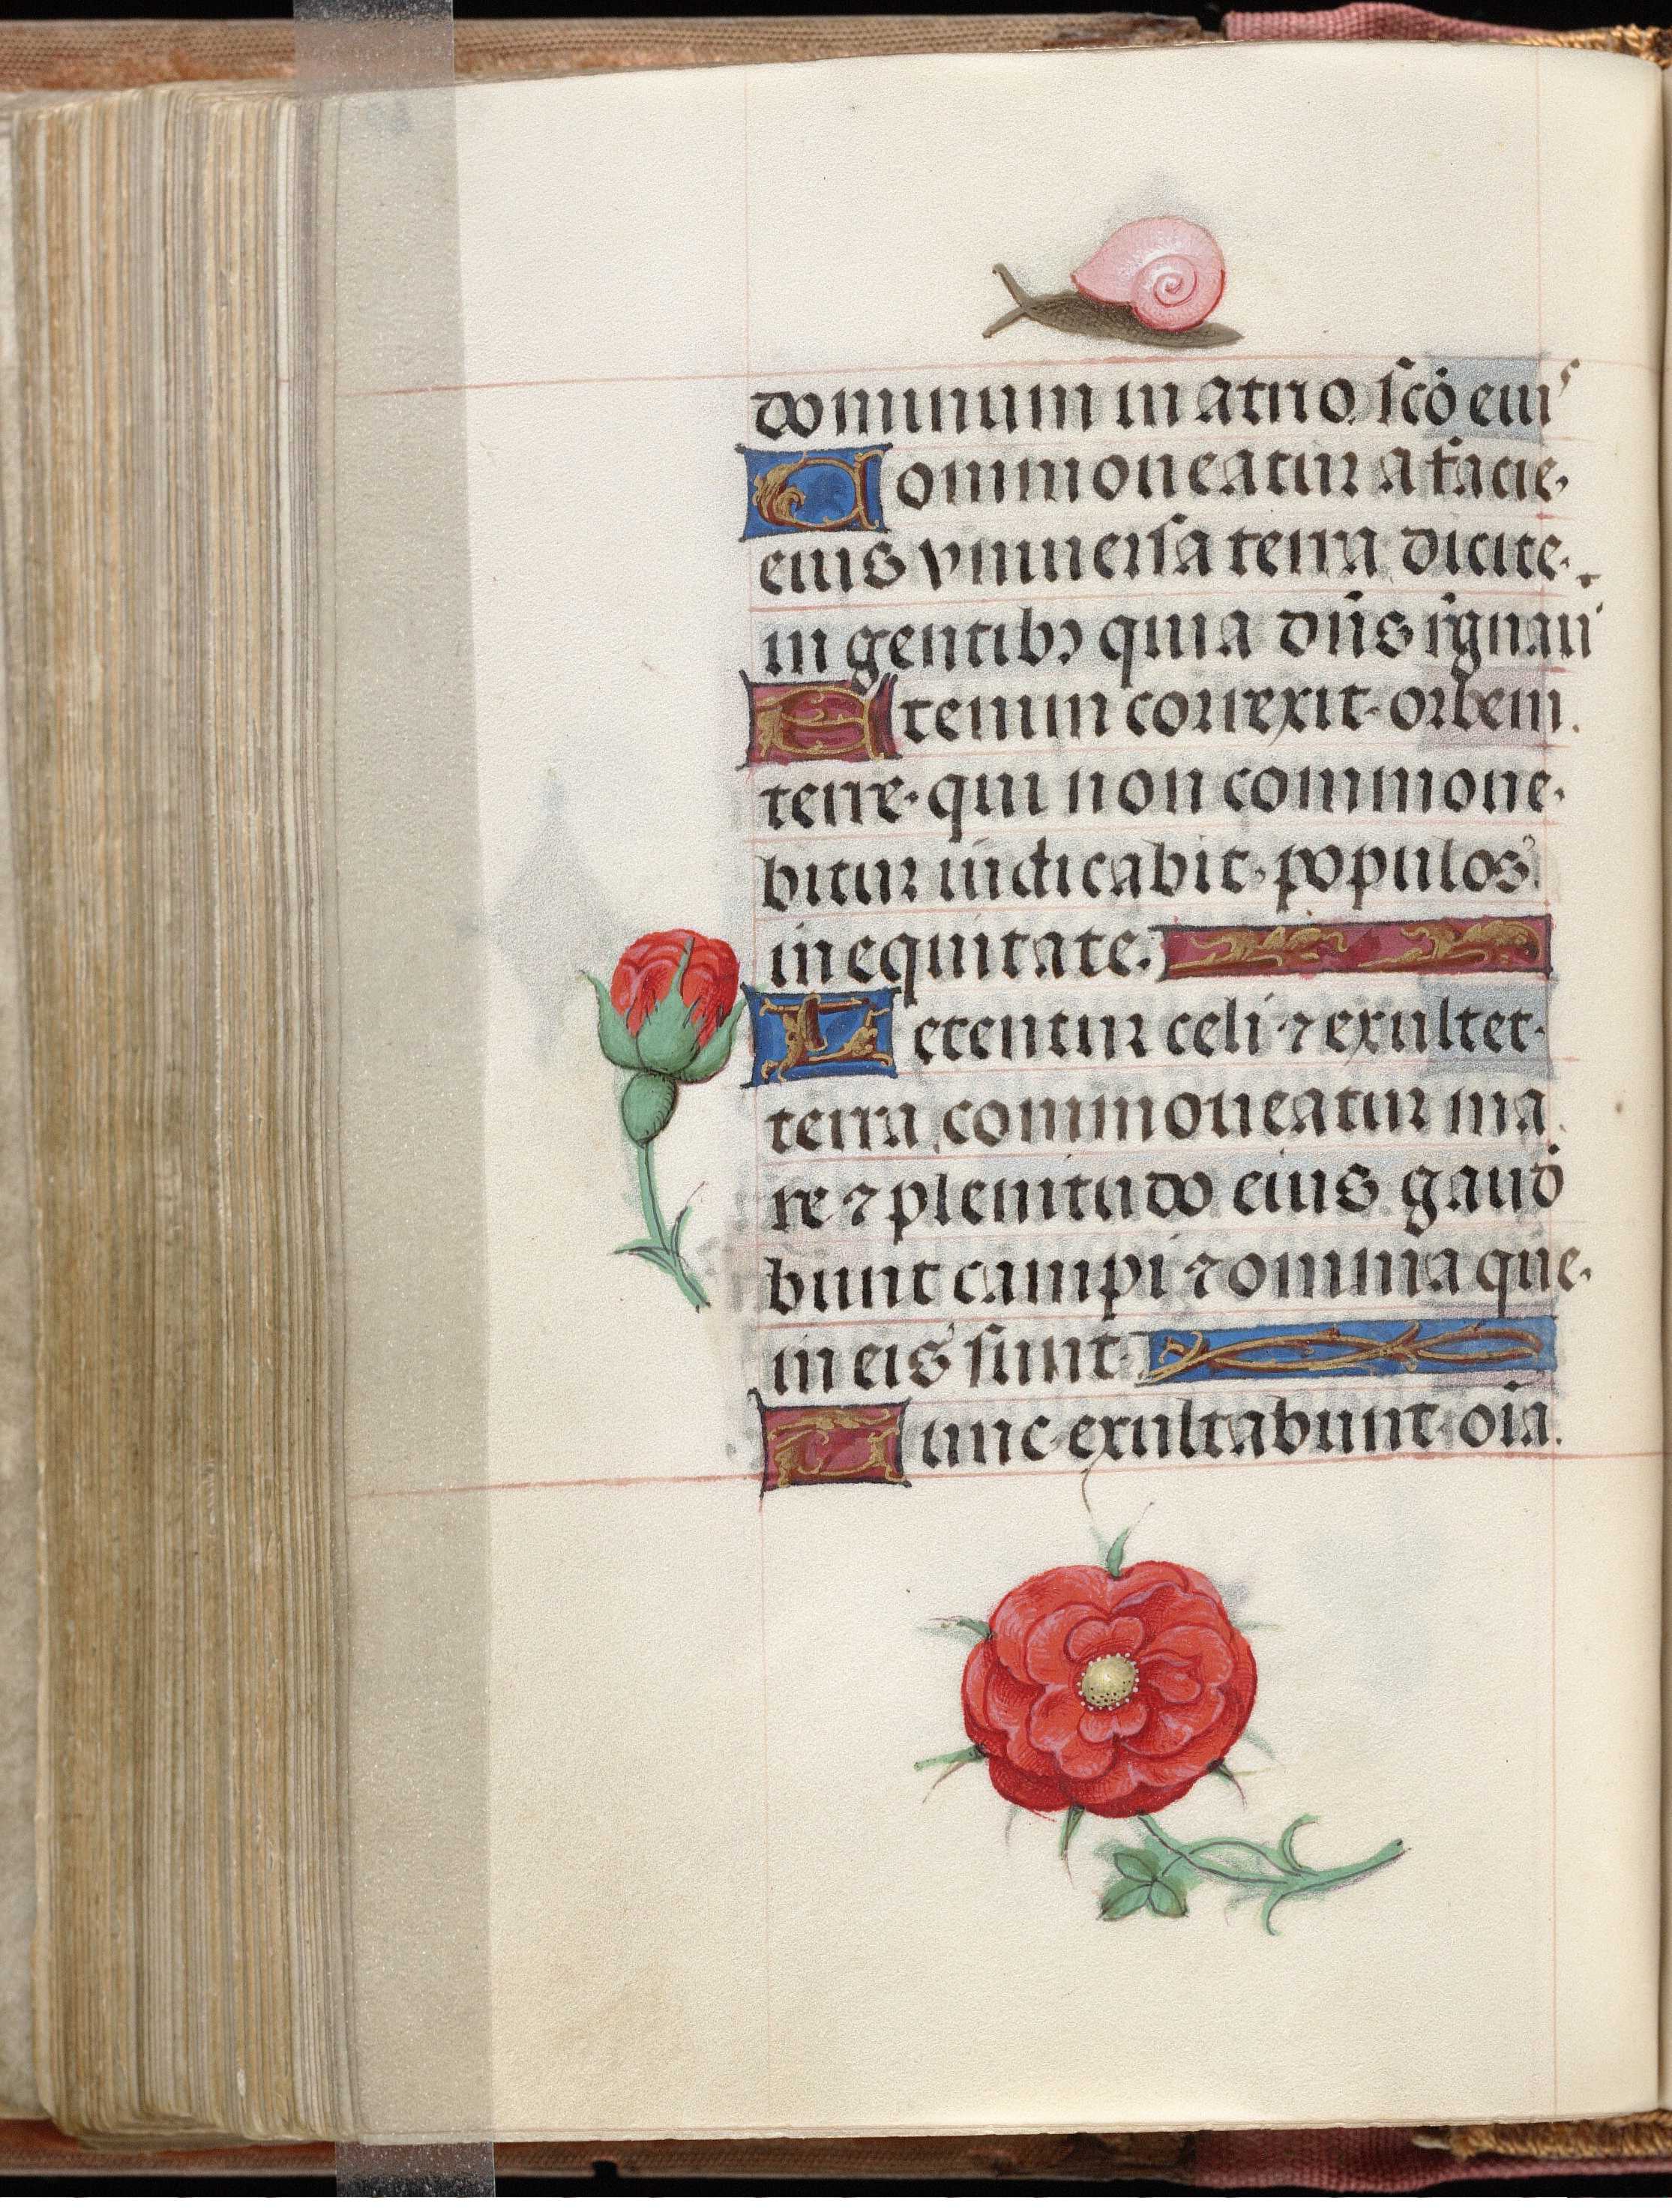 dominum in atrio scō eiuˢ
Commoueatur a facie
eius vniuersa terra dicite
in gentibꝫ quia dn̄s rꝫgnauiᵗ
Etenim correxit orbem
terre qui non commoue
bitur iudicabit populos
in equitate.
Letentur celi ⁊ exultet
terra commoueatur ma
re ⁊ plenitudo eius gaud̄
bunt campi ⁊ omnia que
in eis sunt.
Tunc exultabunt oīa